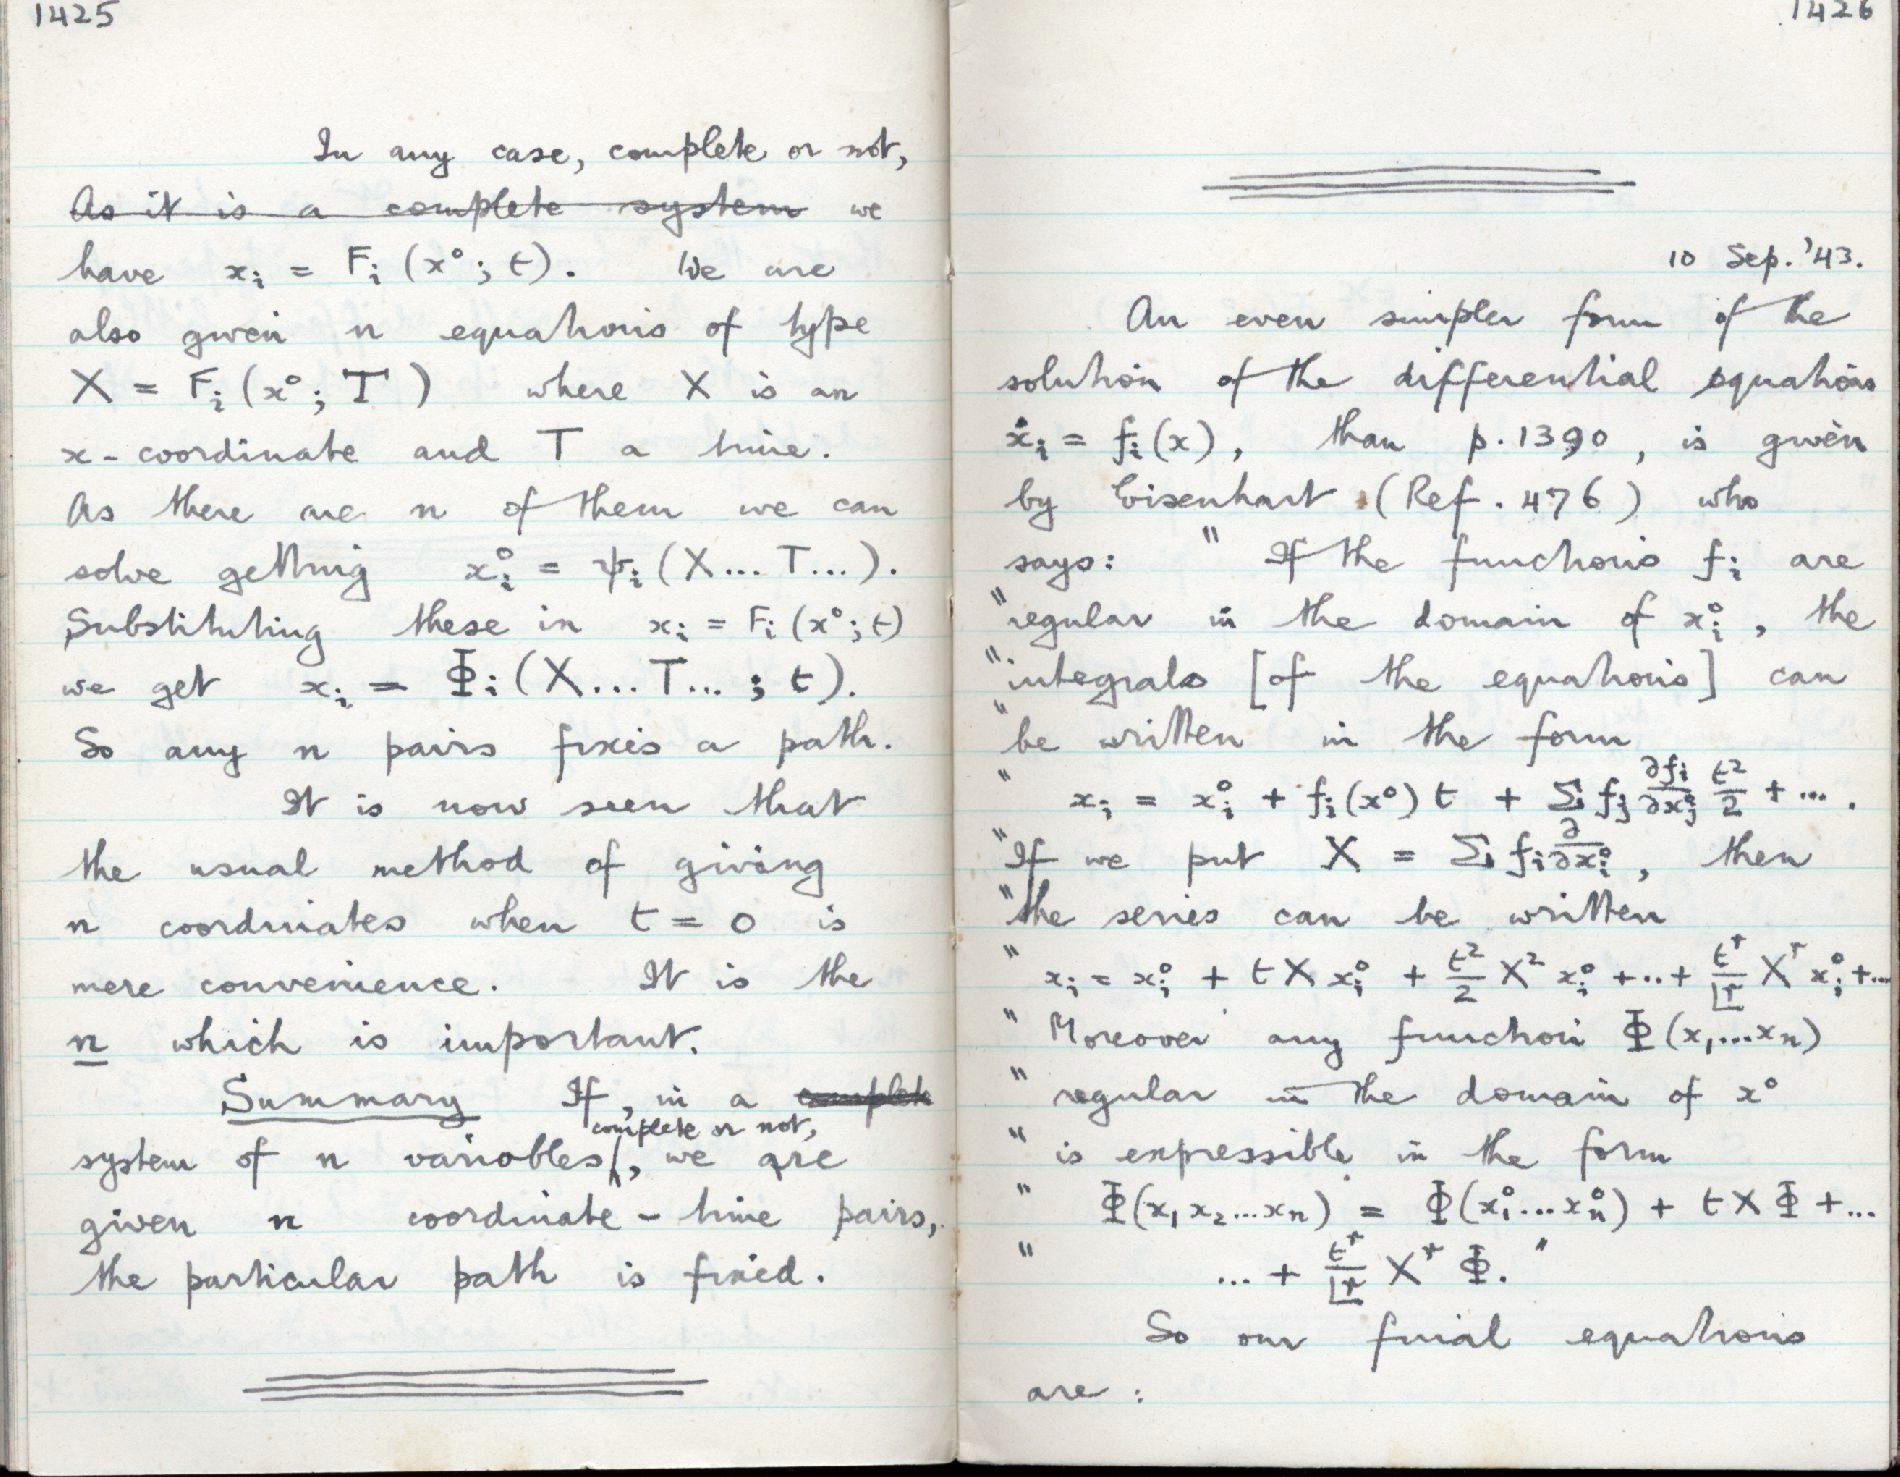 1425
In any case, complete or not,
As it is a complete system we
have xᵢ = Fᵢ (x⁰; t). We are
also given n equations of type
X = Fᵢ (x⁰; T) where X is an
x-coordinate and T a time.
As there are n of them we can
solve getting xᵢ⁰ = ψᵢ (X... T...).
Substituting these in xᵢ = Fᵢ (x⁰; t)
we get xᵢ = Φᵢ (X... T... ; t).
So any n pairs fixes a path.
It is now seen that
the usual method of giving
n coordinates when t = 0 is
mere convenience. It is the
n which is important.
Summary If, in a complete
complete or not,
system of n variables, we are
given n coordinate-time pairs,
the particular path is fixed.
1426
10 Sep. '43.
An even simpler form of the
solution of the differential equations
ẋᵢ = fᵢ(x), than p. 1390, is given
by Eisenhart (Ref. 476) who
says: " If the functions fᵢ are
" regular in the domain of xᵢ⁰, the
" integrals [of the equations] can
" be written in the form
" xᵢ = xᵢ⁰ + fᵢ(x⁰) t + Σ fⱼ ∂fᵢ/∂xⱼ⁰ t²/2 + ... .
" If we put X = Σ fᵢ ∂/∂xᵢ⁰, then
" the series can be written
" xᵢ = xᵢ⁰ + t X xᵢ⁰ + t²/2 X² xᵢ⁰ + .. + tʳ/|r X ʳ xᵢ⁰ + ...
" Moreover any function Φ(x₁...xₙ)
" regular in the domain of x⁰
" is expressible in the form
" Φ(x₁ x₂ ... xₙ) = Φ(x₁⁰ ... xₙ⁰) + t X Φ + ...
" ... + tʳ/|r Xʳ Φ. "
So our final equations
are :